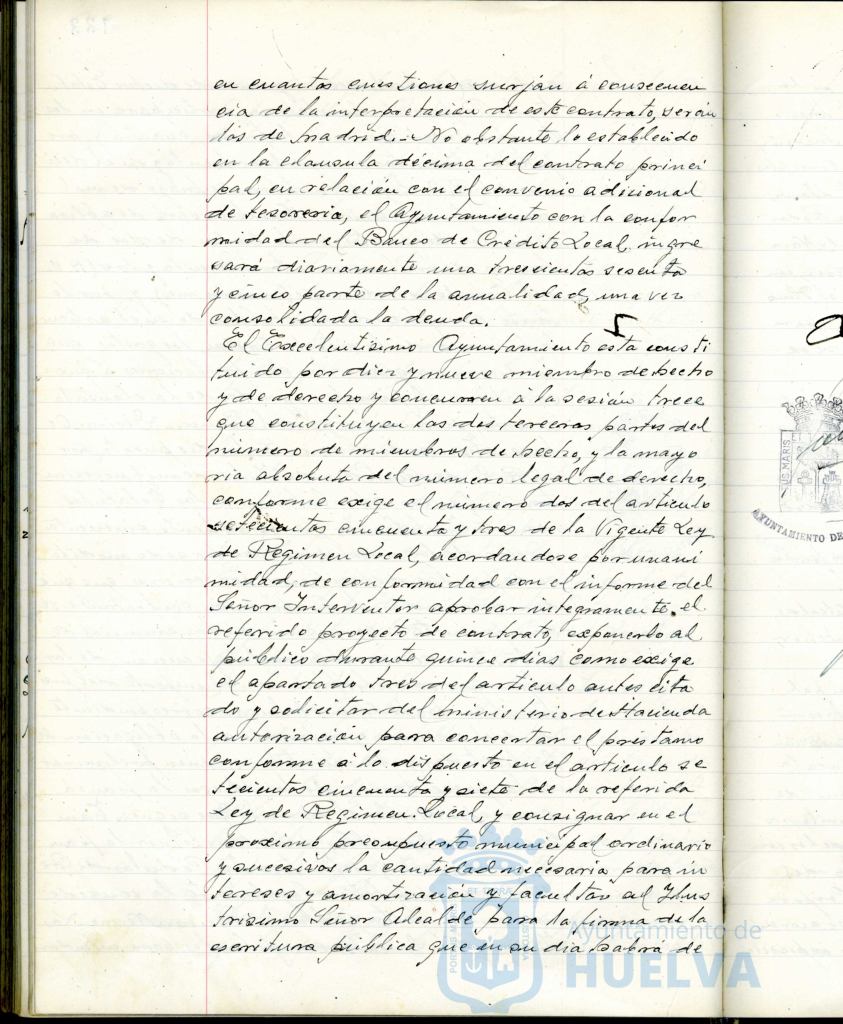 en cuantas cuestiones surján á consecuen
cia de la interpretación de este contrato, serán
los de Madrid.- No obstante lo establecido
en la clausula décima del contrato princi
pal, en relación con el convenio adicional
de tesoreria, el Ayuntamiento con la confor
midad del Banco de Crédito Local ingre
sará diariamente una trescientas sesenta
y cinco parte de la anualidad, una vez
consolidada la deuda.
El Excelentisimo Ayuntamiento esta consti
tuido por diez y nueve miembro de hecho
y de derecho y concurren á la sesión trece
que constituyen las dos terceras partes del
número de miembros de hecho, y la mayo
ria absoluta del número legal de derecho,
conforme exige el número dos del articulo
setecientos cincuenta y tres de la Vigente Ley
de Regimen Local, acordandose por unani
midad, de conformidad con el informe del
Señor Interventor aprobar integramente el
referido proyecto de contrato, exponerlo al
público durante quince dias como exige
el apartado tres del articulo antes cita
do y solicitar del ministerio de Hacienda
autorización para concertar el préstamo
conforme á lo dispuesto en el articulo se
tecientos cincuenta y siete de la referida
Ley de Regimen Local, y consignar en el
proximo presupuesto municipal ordinario
y sucesivos la cantidad necesaria para in
tereses y amortización y facultar al Ilus
trisimo Señor Alcalde para la firma de la
escritura pública que en su dia habrá de
US MARIS
AYUNTAMIENTO DE
Ayuntamiento de
HUELVA